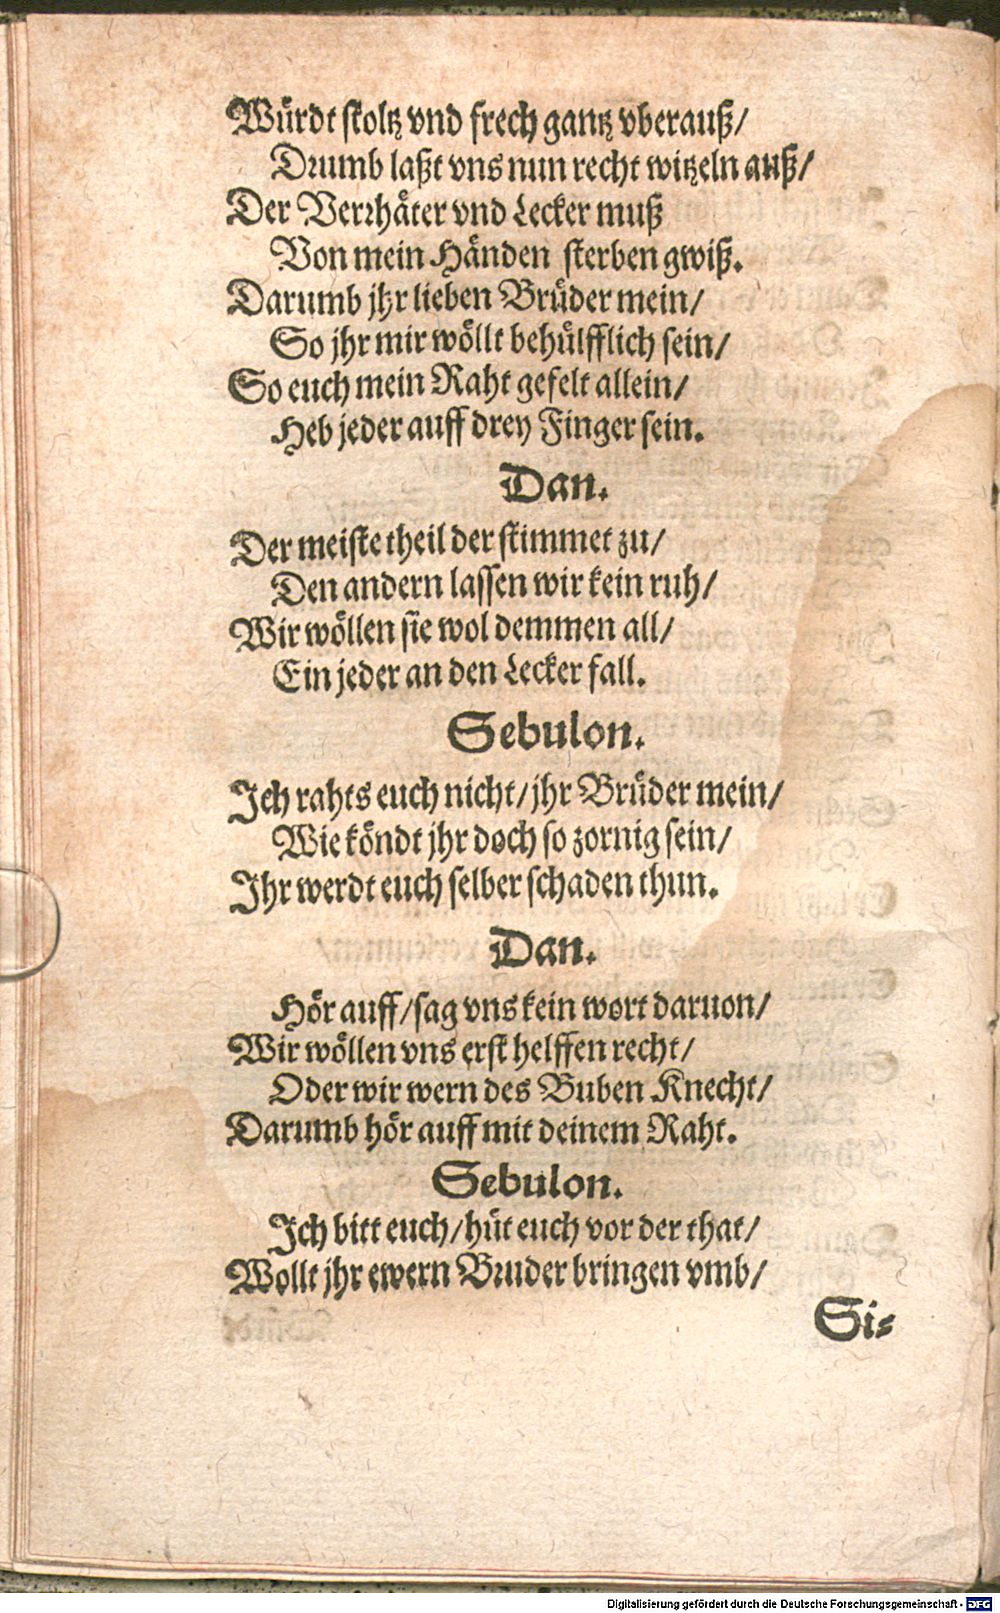 Wůrdt stoltz vnd frech gantz vberauß/
Drumb laßt vns nun recht witzeln auß/
Der Verrhåter vnd Lecker muß
Von mein Hånden sterben gwiß.
Darumb jhr lieben Brůder mein/
So jhr mir wöllt behůlfflich sein/
So euch mein Raht gefelt allein/
Heb jeder auff drey Finger sein.
Dan.
Der meiste theil der stimmet zu/
Den andern lassen wir kein ruh/
Wir wöllen sie wol demmen all/
Ein jeder an den Lecker fall.
Sebulon.
Ich rahts euch nicht/ jhr Brůder mein/
Wie köndt jhr doch so zornig sein/
Ihr werdt euch selber schaden thun.
Dan.
Hör auff/ sag vns kein wort daruon/
Wir wöllen vns erst helffen recht/
Oder wir wern des Buben Knecht/
Darumb hör auff mit deinem Raht.
Sebulon.
Ich bitt euch/ hůt euch vor der that/
Wollt jhr ewern Bruder bringen vmb/
Si-
Digitalisierung gefördert durch die Deutsche Forschungsgemeinschaft - DFG